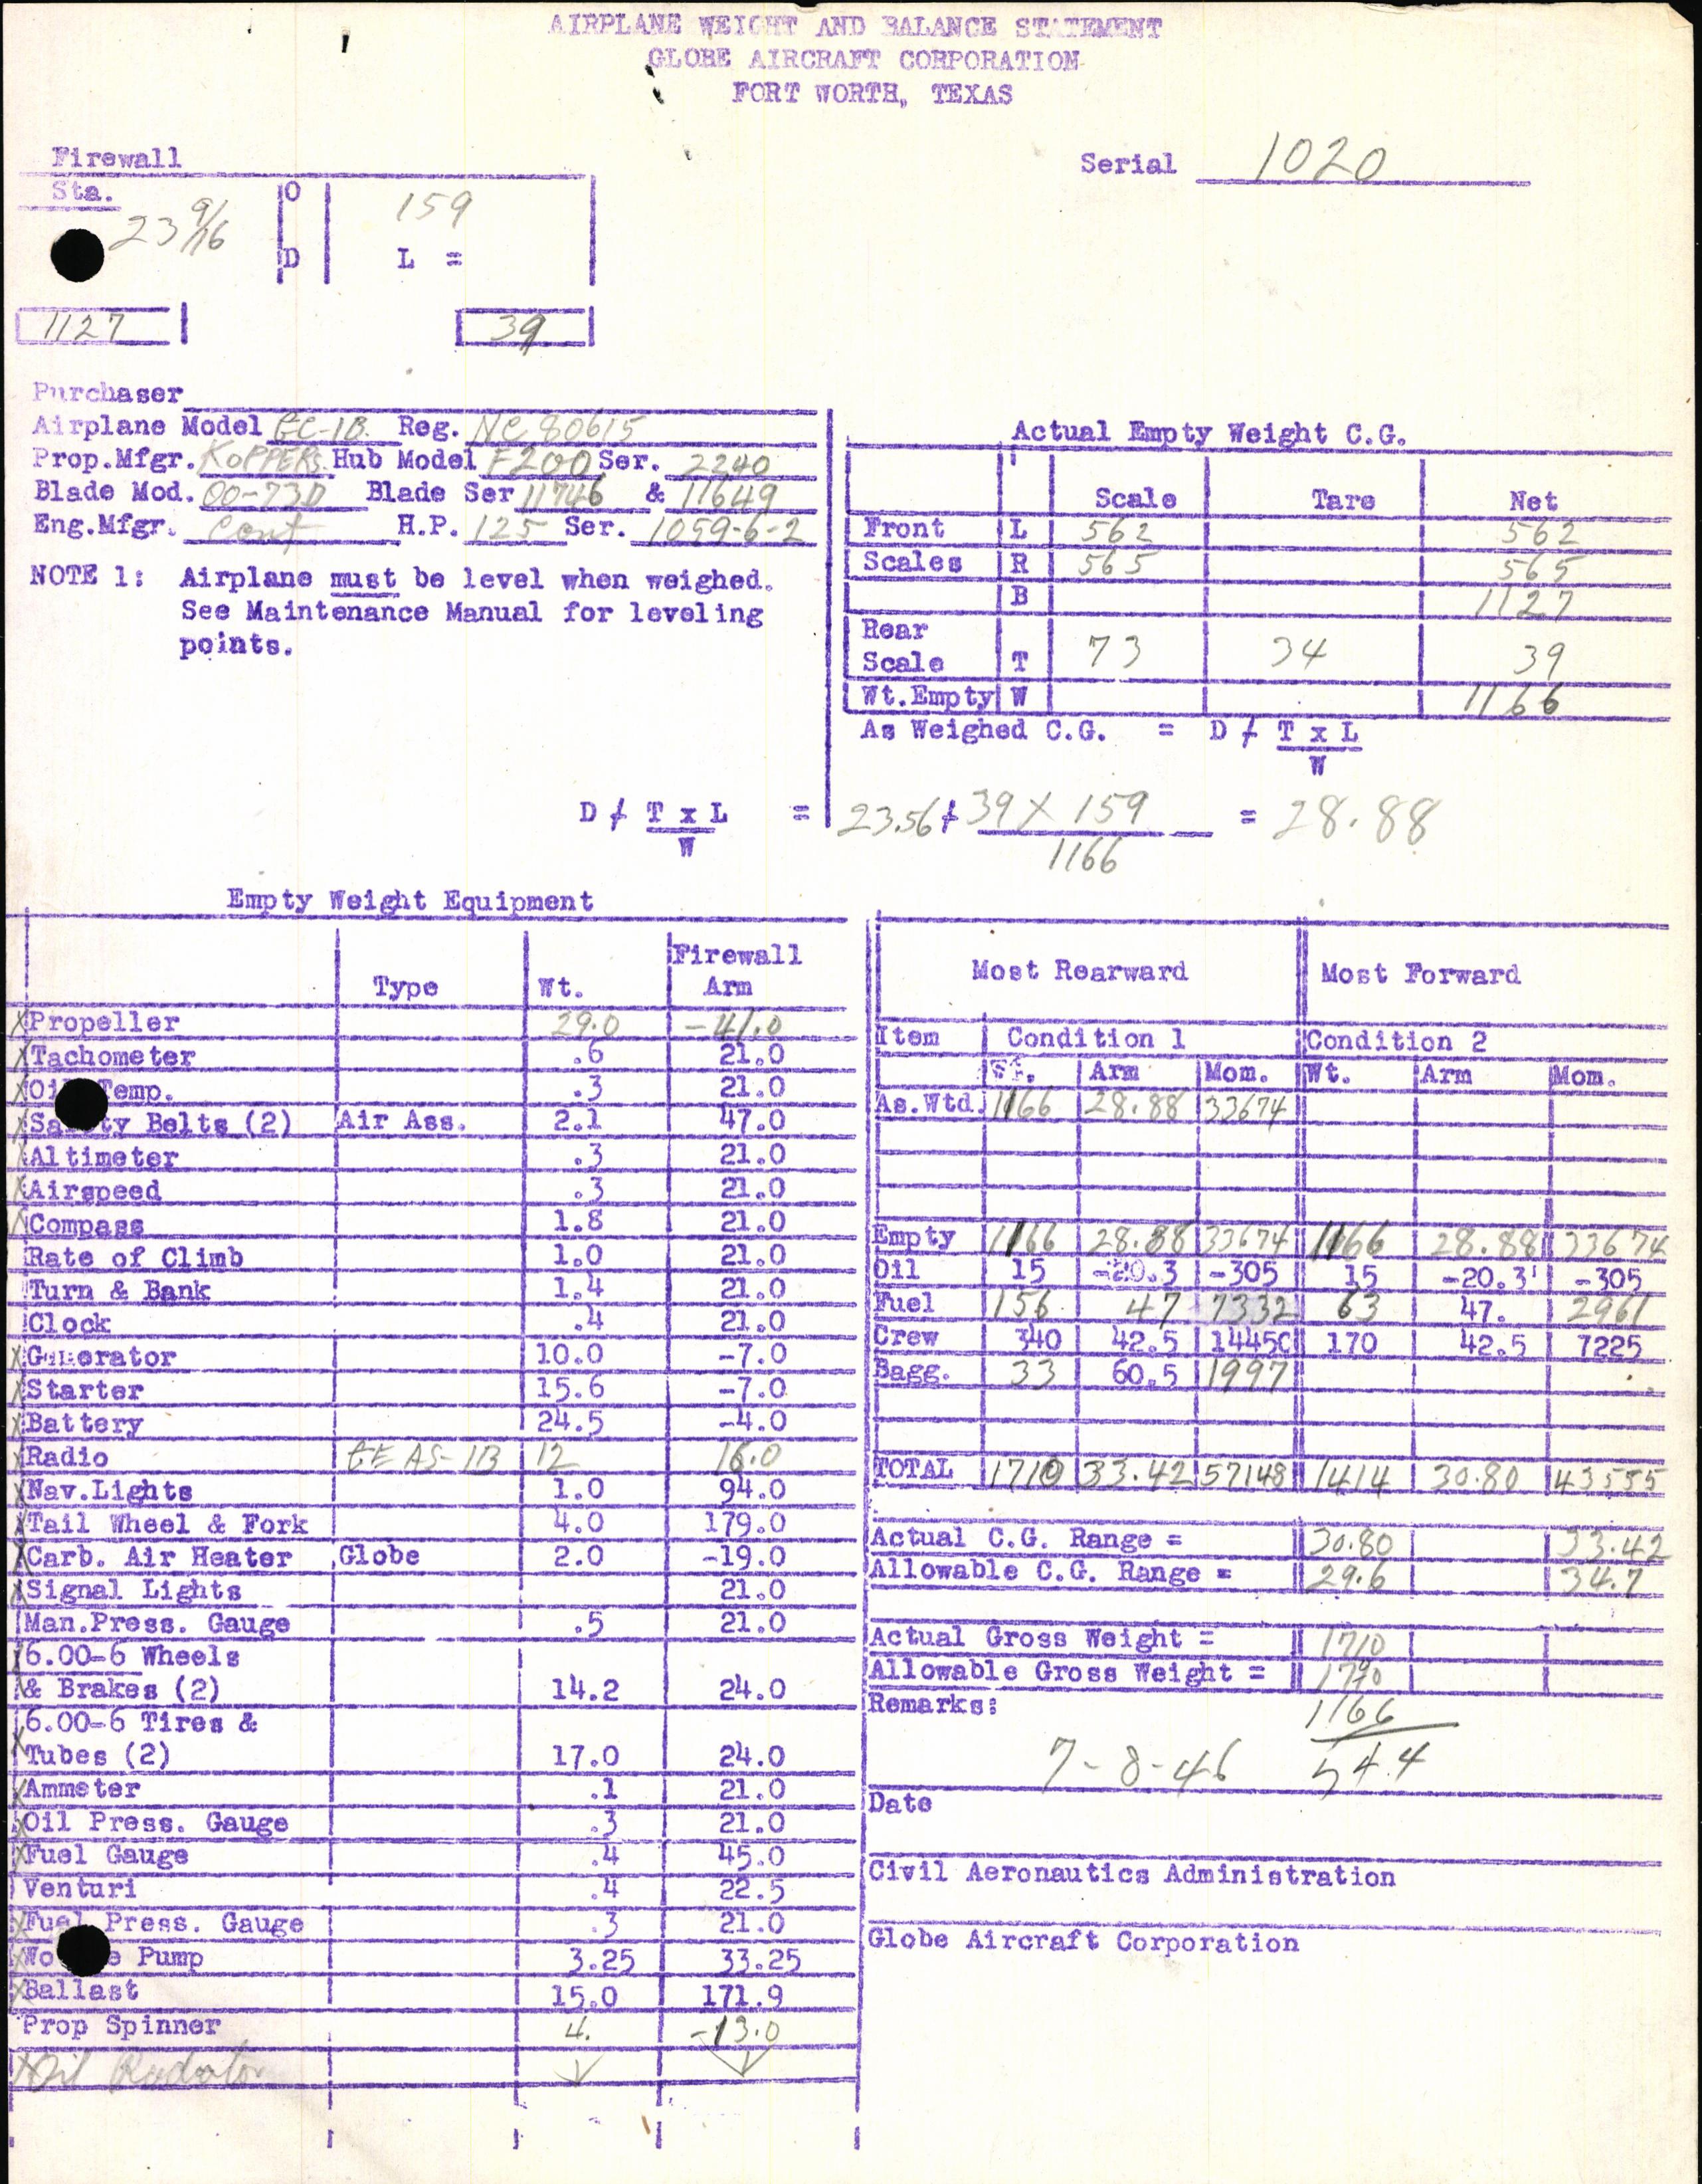 AIRPLANE WEIGHT AND BALANCE STATEMENT
GLOBE AIRCRAFT CORPORATION
FORT WORTH, TEXAS
Firewall
Serial 1020
Sta. 23 9/16 O 159
D L =
1127 39
Purchaser
Airplane Model GC-1B Reg. NC 80615
Prop.Mfgr. KOPPERS Hub Model F200 Ser. 2240
Blade Mod. 00-73D Blade Ser 11746 & 11649
Eng.Mfgr. Cont H.P. 125 Ser. 1059-6-2
NOTE 1: Airplane must be level when weighed.
See Maintenance Manual for leveling
points.
Actual Empty Weight C.G.
Scale Tare Net
Front L 562 562
Scales R 565 565
B 1127
Rear
Scale T 73 34 39
Wt.Empty W 1166
As Weighed C.G. = D / T x L
W
D / T x L = 23.56 + 39 X 159 = 28.88
W 1166
Empty Weight Equipment
Type Wt. Firewall Arm
X Propeller 29.0 -41.0
X Tachometer .6 21.0
X Oil Temp. .3 21.0
X Sa ty Belts (2) Air Ass. 2.1 47.0
X Altimeter .3 21.0
X Airspeed .3 21.0
X Compass 1.8 21.0
Rate of Climb 1.0 21.0
Turn & Bank 1.4 21.0
Clock .4 21.0
X Generator 10.0 -7.0
X Starter 15.6 -7.0
X Battery 24.5 -4.0
X Radio GE AS-1B 12 16.0
X Nav.Lights 1.0 94.0
X Tail Wheel & Fork 4.0 179.0
X Carb. Air Heater Globe 2.0 -19.0
X Signal Lights 21.0
Man.Press. Gauge .5 21.0
X 6.00-6 Wheels
& Brakes (2) 14.2 24.0
6.00-6 Tires &
X Tubes (2) 17.0 24.0
X Ammeter .1 21.0
X Oil Press. Gauge .3 21.0
X Fuel Gauge .4 45.0
Venturi .4 22.5
X Fuel Press. Gauge .3 21.0
X Wo e Pump 3.25 33.25
X Ballast 15.0 171.9
Prop Spinner 4. -13.0
X Oil Radator
Most Rearward Most Forward
Item Condition 1 Condition 2
Wt. Arm Mom. Wt. Arm Mom.
As.Wtd. 1166 28.88 33674
Empty 1166 28.88 33674 1166 28.88 33674
Oil 15 -20.3 -305 15 -20.3 -305
Fuel 156 47 7332 63 47. 2961
Crew 340 42.5 14450 170 42.5 7225
Bagg. 33 60.5 1997
TOTAL 1710 33.42 57148 1414 30.80 43555
Actual C.G. Range = 30.80 33.42
Allowable C.G. Range = 29.6 34.7
Actual Gross Weight = 1710
Allowable Gross Weight = 1710
Remarks: 1166
7-8-46 544
Date
Civil Aeronautics Administration
Globe Aircraft Corporation